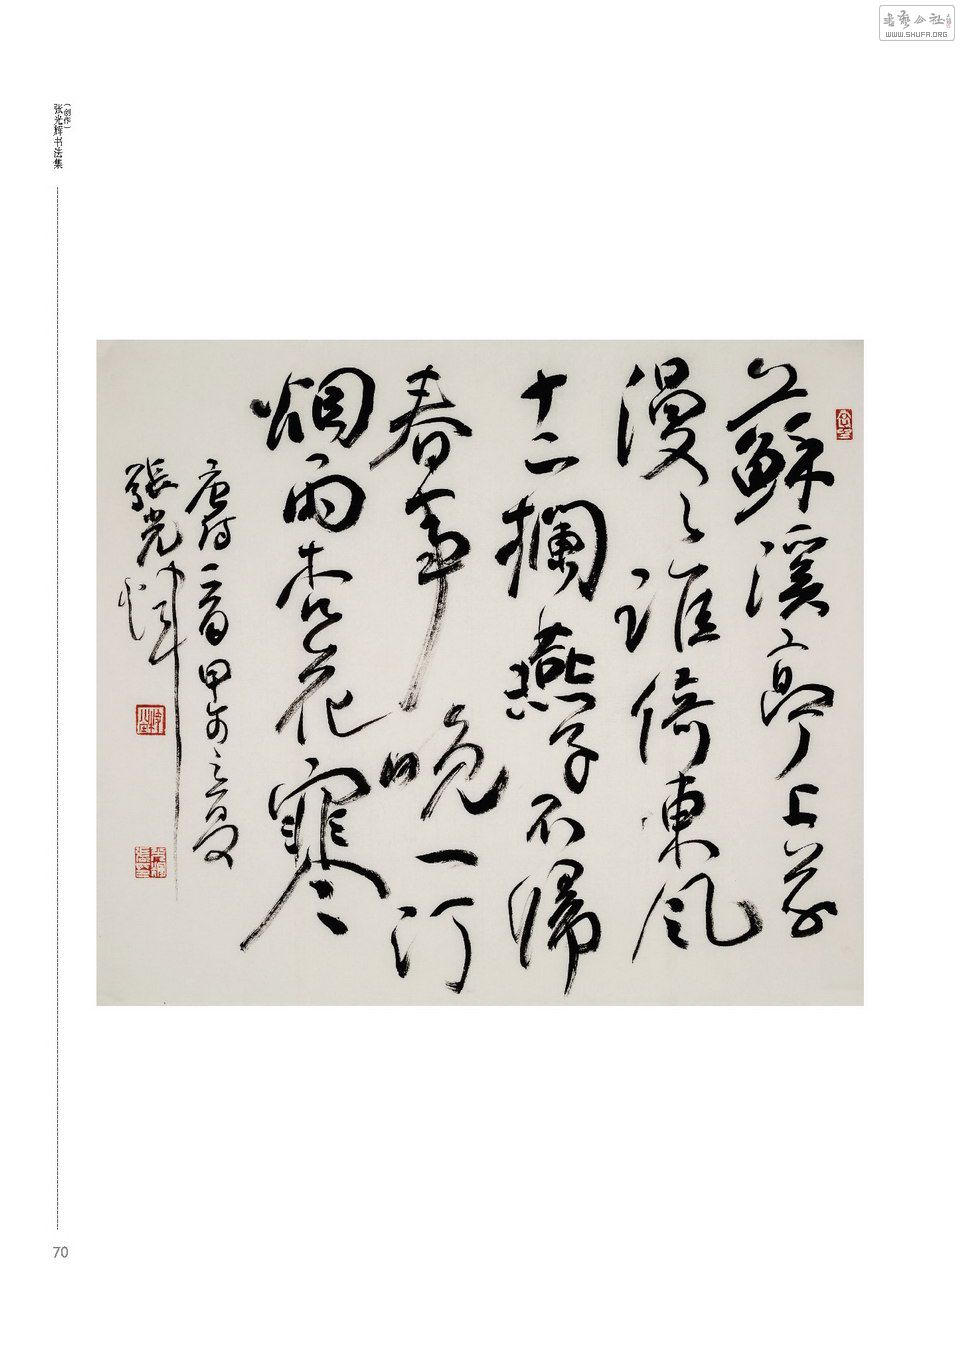 書藝公社
WWW.SHUFA.ORG
（创作）
张光辉书法集
蘇溪亭上草
漫々誰倚東風
十二欄燕子不歸
春事晚一汀
烟雨杏花寒
唐诗一首甲午之夏
張光輝
70